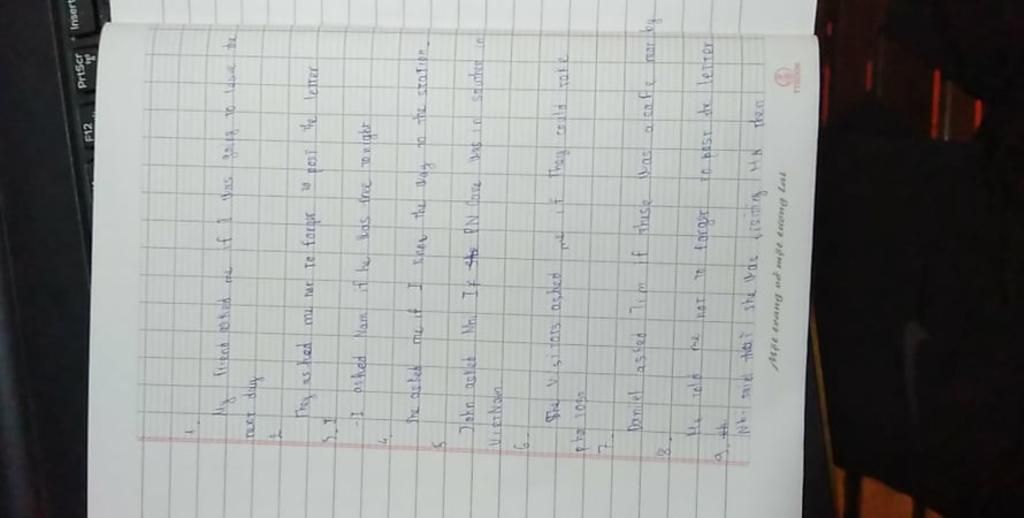 1.
My friend asked me if I was going to leave the
next day
2
They asked me not to forget to post the letter
3. I
- I asked Nam if he was free tonight
4.
She asked me if I knew the way to the station.
5
John asked Mni If PN Cave was in southern in
VietNam
6.
The visitors asked me if They could take
photos
7.
Daniel asked Tim if these was a cafe near by
8.
He told me not to forget to post the letter
9.
Nhi said that she was visiting HN then
PrtScr
F12
Insert